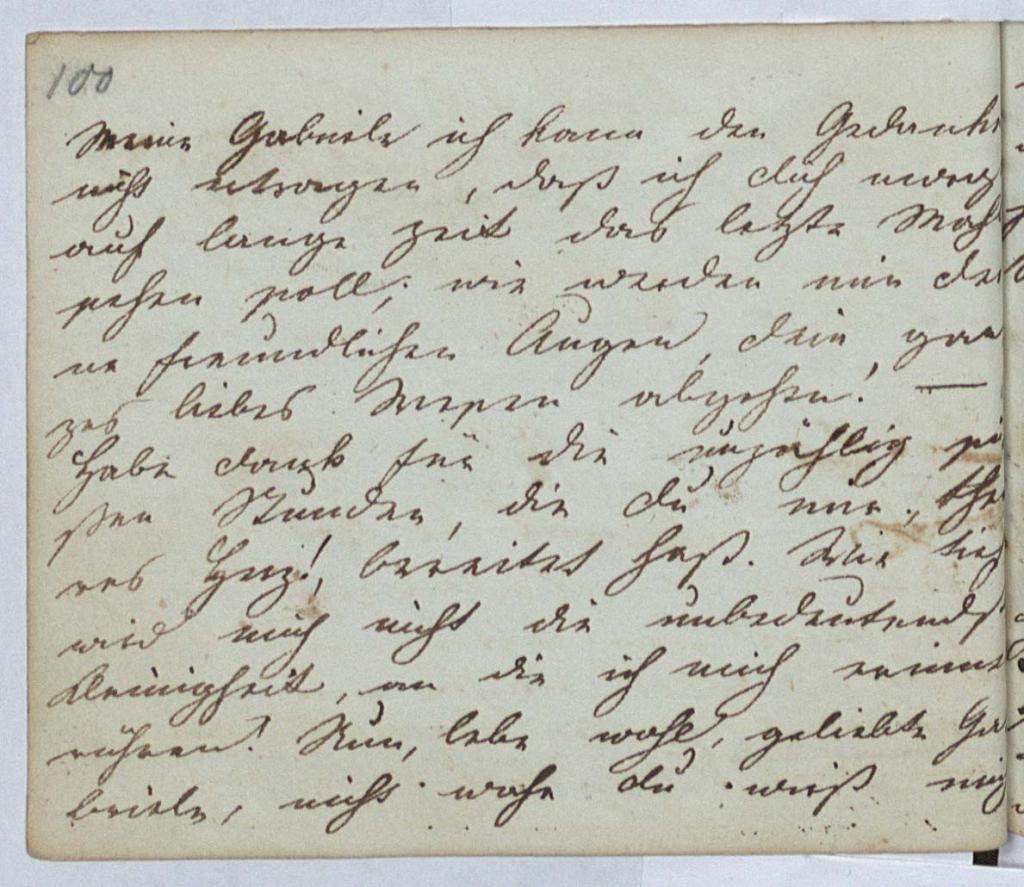 100
Meine Gabriele ich kann den Gedanke
nicht ertragen, daß ich dich morg
auf lange Zeit das letzte Mahl
sehen soll; wie werden mir dei
ne freundlichen Augen, dein gan
zes liebes Wesen abgehen! —
Habe dank für die unzählig sü
ßen Stunden, die du mir, theu
res Herz!, bereitet hast. Wie tief
wird mich nicht die unbedeutends
Kleinigkeit, an die ich mich erinne
rühren! Nun, lebe wohl, geliebte Ga
briele, nicht wahr du wirst mich